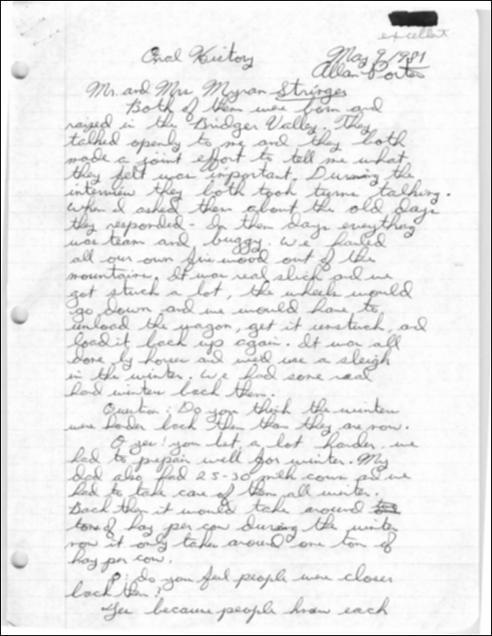 excellent
Oral History May 9, 1981
Allan Porter
Mr. and Mrs Myran Stringer
Both of them were born and
raised in the Bridger Valley. They
talked openly to me and they both
made a joint effort to tell me what
they felt was important. During the
interview they both took turns talking.
When I asked them about the old days
they responded - In them days everything
was team and buggy. We hauled
all our own fire wood out of the
mountains. It was real slick and we
got stuck a lot, the wheels would
go down and we would have to
unload the wagon, get it unstuck, and
load it back up again. It was all
done by horses and we'd use a sleigh
in the winter. We had some real
hard winters back then.
Question: Do you think the winters
were harder back then than they are now.
O yes! you bet, a lot harder. we
had to prepair well for winter. My
dad also had 25-30 milk cows and we
had to take care of them all winter.
Back then it would take around
tons of hay per cow during the winter
now it only takes around one ton of
hay per cow.
Q: do you feel people were closer
back then?
Yes because people knew each